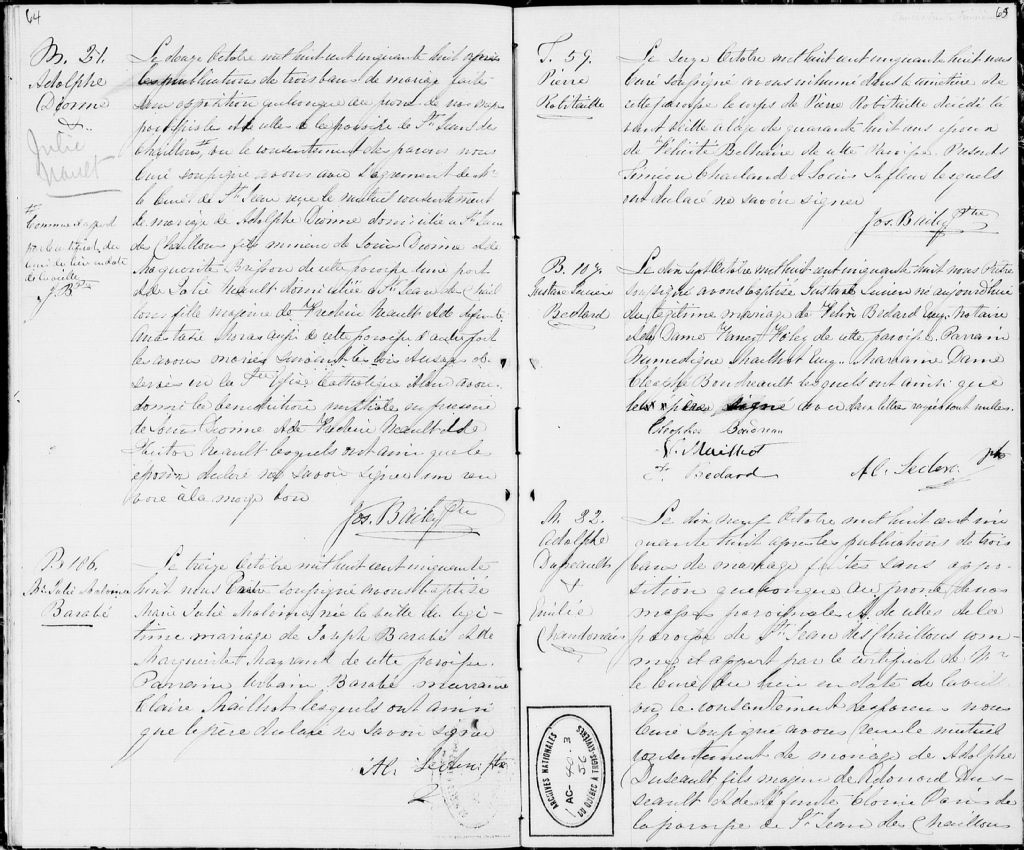 64
M. 21.
Adolphe
Dionne
&
Julie
Neault
+
Comme il appert
par le certificat du
Curé du lieu en date
de la veille
J. B. Ptre
Le douze Octobre mil huit cent cinquante huit après
les publications de trois bans de mariage faite
sans opposition quelconque au prone de nos messes
paroissiales et de celles de la paroisse de St Jean des
Chaillons, vu le consentement des parens nous
Curé soussigné avons avec l'agrément de Mr
le Curé de St Jean reçu le mutuel consentement
de mariage de Adolphe Dionne domicilié a St Jean
des Chaillons fils mineur de Louis Dionne et de
Marguerite Brisson de cette paroisse d'une part
et de Julie Neault domiciliée a St Jean des Chail
lons fille majeure de Frederic Neault et de défunte
Anastasie de cette paroisse d'autre part
les avons mariés suivant les lois et usages ob
servés en la Ste Eglise Catholique et leur avons
donné la bénédiction nuptiale en présence
de Louis Dionne et de Frederic Neault et de
Hector Neault lesquels ont ainsi que les
epoux déclaré ne savoir signer un ren
voi à la marge bon
Jos. Bailey Ptre
B. 106.
Me Julie Malvina
Barabé
Le treize Octobre mil huit cent cinquante
huit nous Prêtre soussigné avons baptisé
Marie Julie Malvina née la veille du légi-
time mariage de Joseph Barabé et de
Marguerite Mayrand de cette paroisse.
Parrain Urbain Barabé marraine
Claire Mailhot lesquels ont ainsi
que le père déclaré ne savoir signer
Al. Leclerc Ptre
65
S. 59.
Pierre
Robitaille
Le seize Octobre mil huit cent cinquante huit nous
Curé soussigné avons inhumé dans le cimetière de
cette paroisse le corps de Pierre Robitaille décédé la
avant veille à l'age de quarante huit ans epoux
de Félicité Belhaire de cette Paroisse. Présents
Siméon Chartrand et Louis Lafleur lesquels
ont déclaré ne savoir signer
Jos. Bailey Ptre
B. 107.
Gustave Lucien
Bedard
Le dix sept Octobre mil huit cent cinquante huit nous Prêtre
soussigné avons baptisé Gustave Lucien né aujourd'hui
du légitime mariage de Félix Bedard Ecuy. notaire
et de Dame Nancy Foley de cette paroisse. Parrain
Numedique Mailhot Ecuy. Marraine Dame
Cleophe Boudreault lesquels ont ainsi que
le père signé avec nous lettres rayées sont nulles.
Cleophe Boudreau
N. Mailhot
F. Bedard
Al. Leclerc Ptre
M. 22.
Adolphe
Duseault
&
Emilie
Chandonais
Le dix neuf Octobre mil huit cent cin
quante huit après les publications de trois
bans de mariage faites sans oppo-
sition quelconque au prone de nos
messes paroissiales et de celles de la
paroisse de St Jean des Chaillons com-
me il appert par le certificat de Mr
le Curé du lieu en date de la veille
vu le consentement des parens nous
Curé soussigné avons reçu le mutuel
consentement de mariage de Adolphe
Duseault fils majeur de Edouard Du-
seault et de défunte Eloise Paris de
la paroisse de St Jean des Chaillons
ARCHIVES NATIONALES
DU QUÉBEC A TROIS-RIVIÈRES
AC-40-3
56